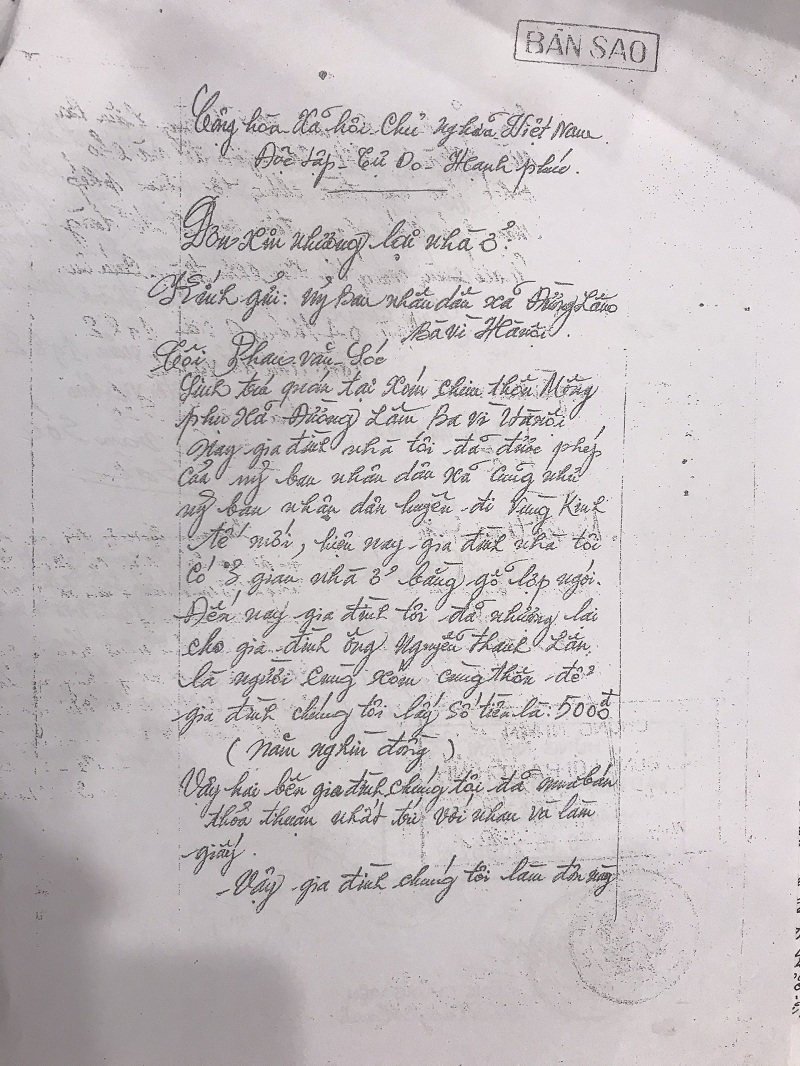 BẢN SAO
Cộng hòa Xã hội Chủ nghĩa Việt Nam
Độc lập - Tự Do - Hạnh phúc.
Đơn xin nhường lại nhà ở.
Kính gửi: Uỷ Ban nhân dân xã Đường Lâm
Ba Vì Hà Nội.
Tôi Phan Văn Sóc
Sinh trú quán tại xóm thôn Mông
phụ Xã Đường Lâm Ba Vì Hà Nội
Nay gia đình nhà tôi đã được phép
của uỷ ban nhân dân xã cũng như
uỷ ban nhân dân huyện đi vùng Kinh
tế mới, hiện nay gia đình nhà tôi
có 3 gian nhà ở bằng gỗ lợp ngói.
Đến nay gia đình tôi đã nhường lại
cho gia đình ông Nguyễn Thanh
là người cùng xóm cùng thôn để
gia đình chúng tôi lấy số tiền là: 5000đ
( Năm nghìn đồng )
Vậy hai bên gia đình chúng tôi đã mua bán
thỏa thuận nhất trí với nhau và làm
giấy.
- Vậy gia đình chúng tôi làm đơn này